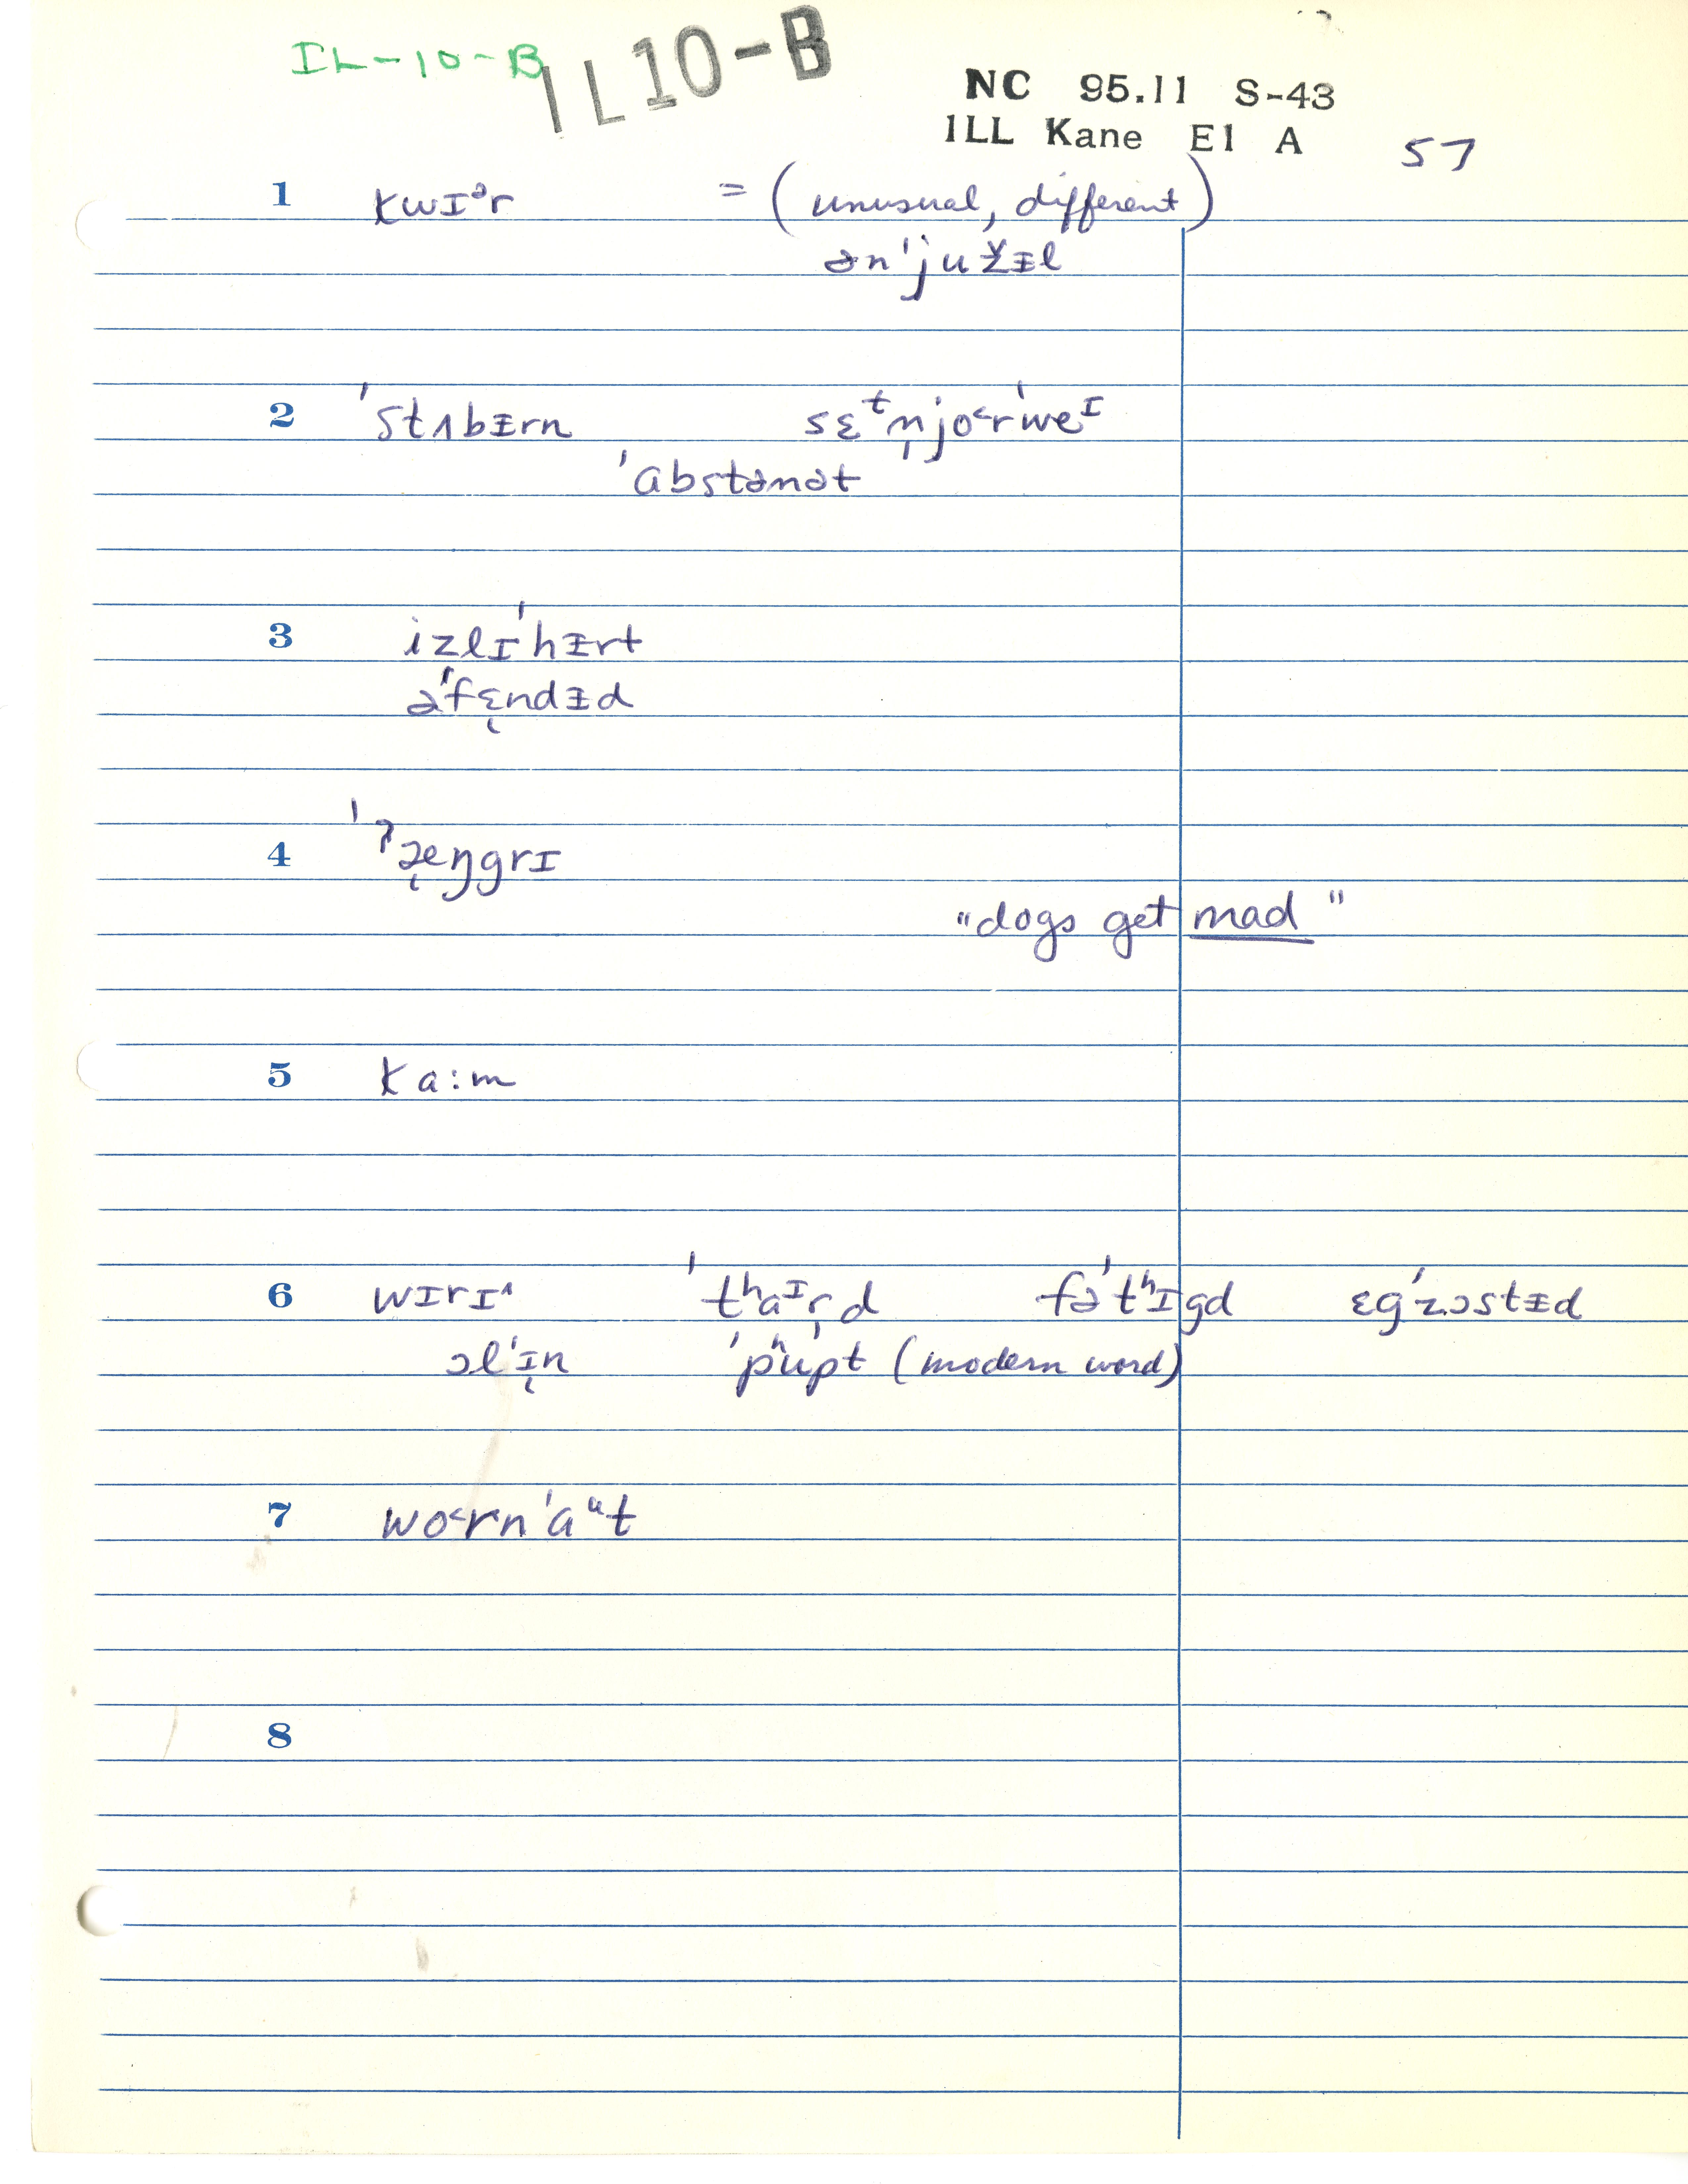 IL-10-B
IL10-B
NC 95.11 S-43
ILL Kane E1 A 57
1 kwɪᵊr = (unusual, different)
ən'juž̆ᵻl
2 'stʌbᵻrn sɛᵗn̩jo˂r'weᴵ
'abstənət
3 izlɪ'hᵻrt
ə'fɛ̨ndᵻd
4 'ˀæ̨ŋgrɪ
"dogs get mad"
5 ka:m
6 wɪrɪ^ 'tʰaᴵr̩d fə'tʰɪgd ɛg'zɔstᵻd
ɔl'ɪ̨n 'pʰu'pt (modern word)
7 wo˂rn'aᵘt
8